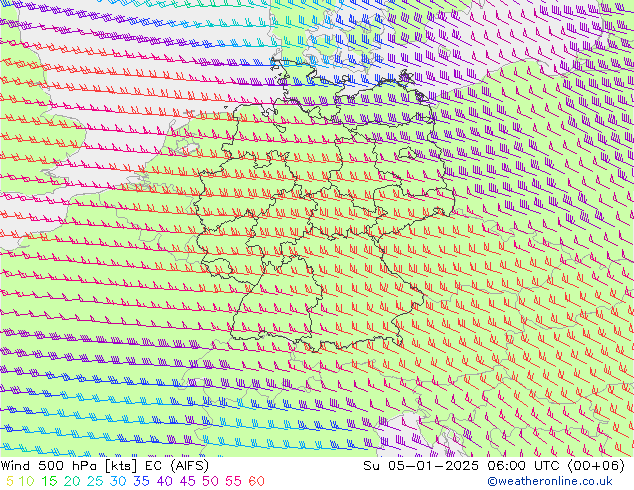 Wind 500 hPa [kts] EC (AIFS) Su 05-01-2025 06:00 UTC (00+06)
5 10 15 20 25 30 35 40 45 50 55 60 ©weatheronline.co.uk